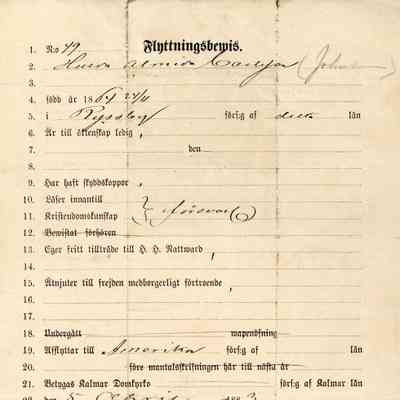 Flyttningsbewis.
1. N:o 49.
2. Hulda Almida Carlsson (John
3.
4. född år 1869 24/4
5. i Ryssby förs:g af detta län
6. Är till äktenskap ledig,
7. den
8.
9. Har haft skyddskoppor,
10. Läser innantill
11. Kristendomskunskap } försvarl.
12. Bewistat förhören
13. Eger fritt tillträde till H. H. Nattward,
14.
15. Åtnjuter till frejden medborgerligt förtroende,
16.
17.
18. Undergått wapenöfning
19. Afflyttar till Amerika förs:g af län
20. före mantalsskrifningen här till nästa år
21. Betygas Kalmar Domkyrko förs:g af Kalmar län
22. den 5 188